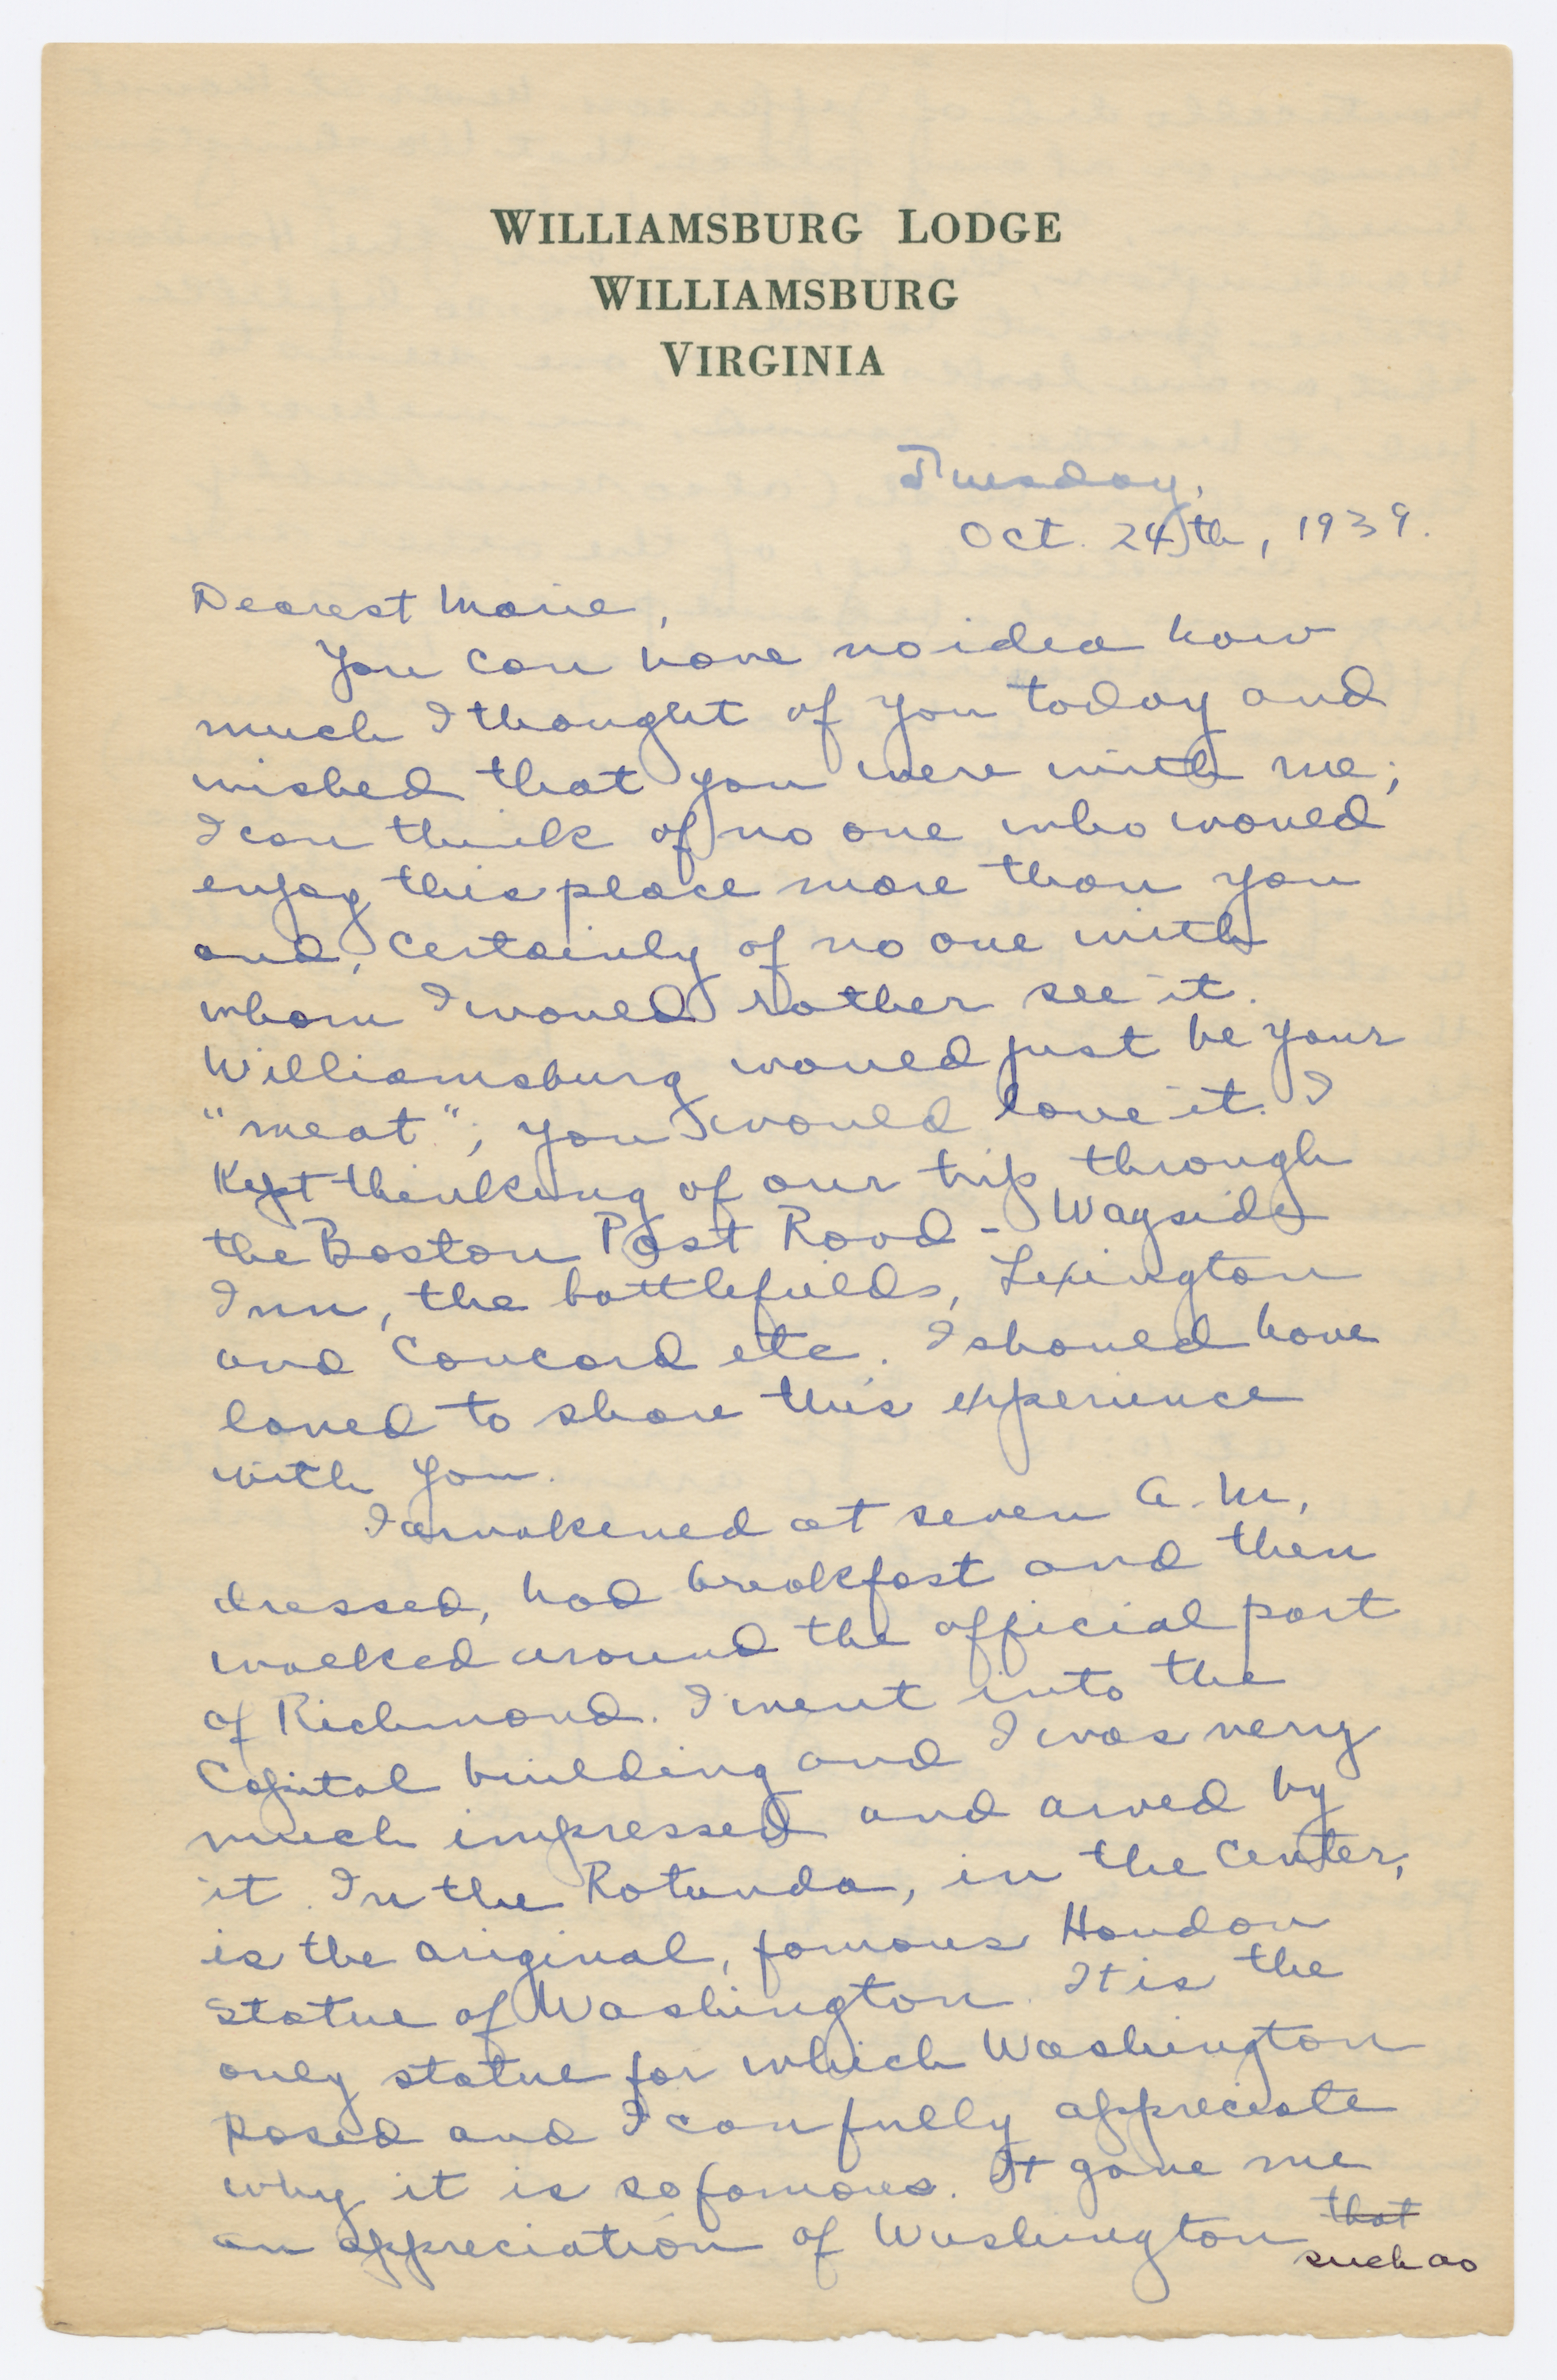 WILLIAMSBURG LODGE
WILLIAMSBURG
VIRGINIA
Tuesday,
Oct. 24th, 1939.
Dearest Marie,
You can have no idea how
much I thought of you today and
wished that you were with me;
I can think of no one who would
enjoy this place more than you
and, certainly of no one with
whom I would rather see it.
Williamsburg would just be your
"meat"; you would love it. I
Kept thinking of our trip through
the Boston Post Road - Wayside
Inn, the battlefields, Lexington
and Concord etc. I should have
loved to share this experience
with you.
I awakened at seven a.m,
dressed, had breakfast and then
walked around the official part
of Richmond. I went into the
Capital building and I was very
much impressed and awed by
it. In the Rotunda, in the center,
is the original, famous Houdon
Statue of Washington. It is the
only statue for which Washington
posed and I can fully appreciate
why it is so famous. It gave me
an appreciation of Washington that
such as